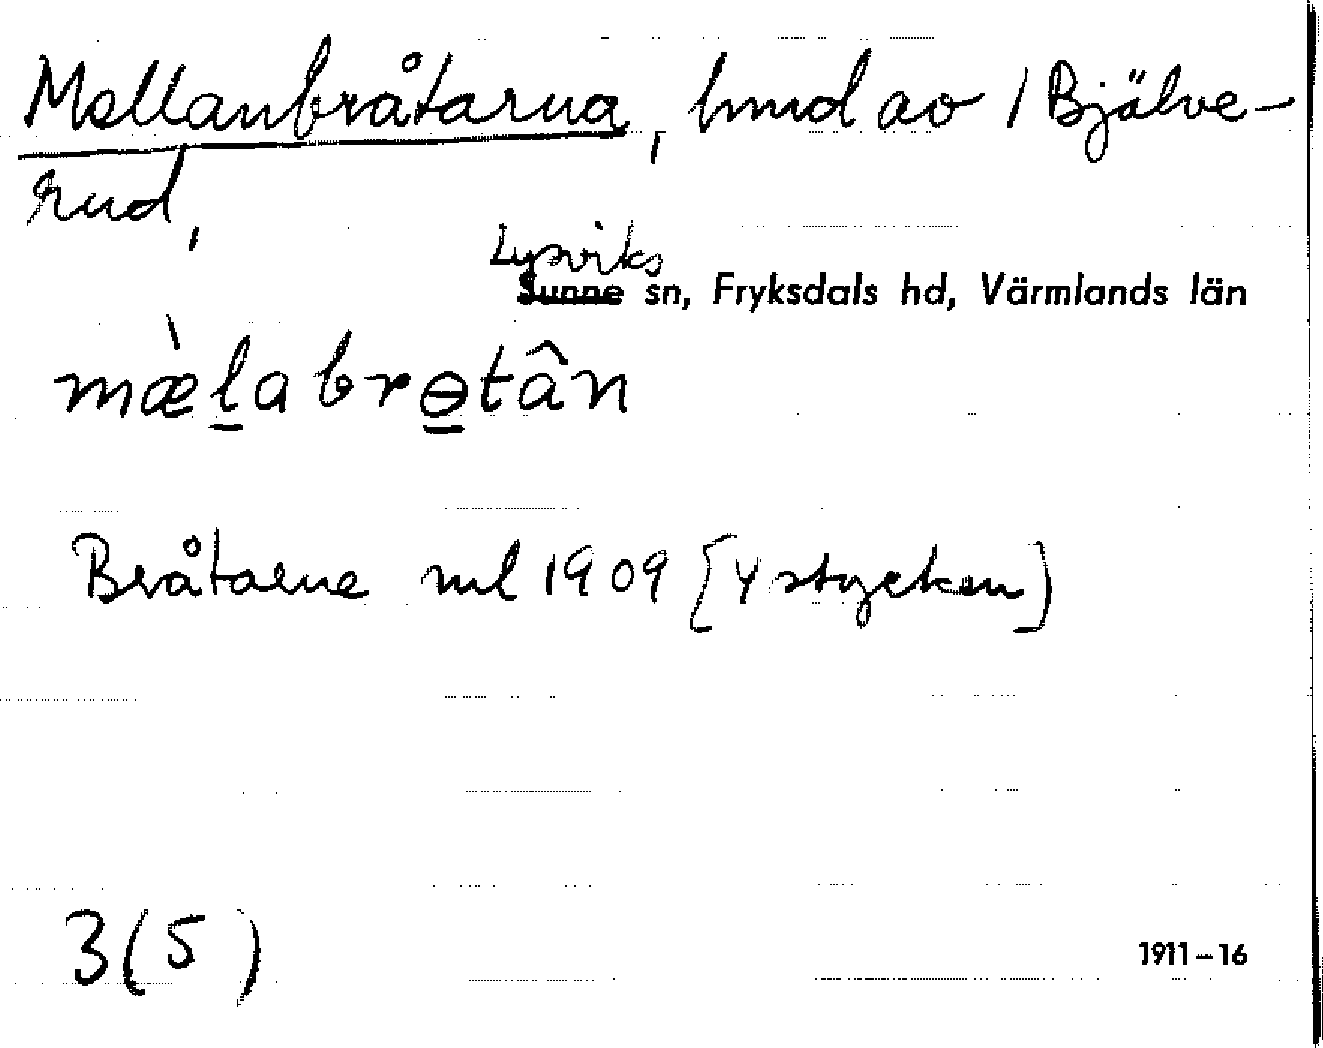 Mellanbråtarna, hmd av /Bjälve-
rud,
Lysviks
Sunne sn, Fryksdals hd, Värmlands län
mæ̀l̲abrɵ̲tân
Bråtarne ml 1909 [4 stycken]
3(5)
1911–16